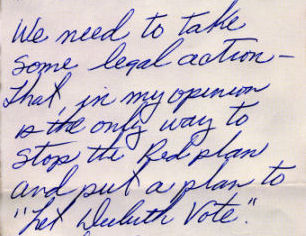 We need to take
some legal action –
that, in my opinion
is the only way to
stop the Red plan
and put a plan to
"Let Duluth Vote".